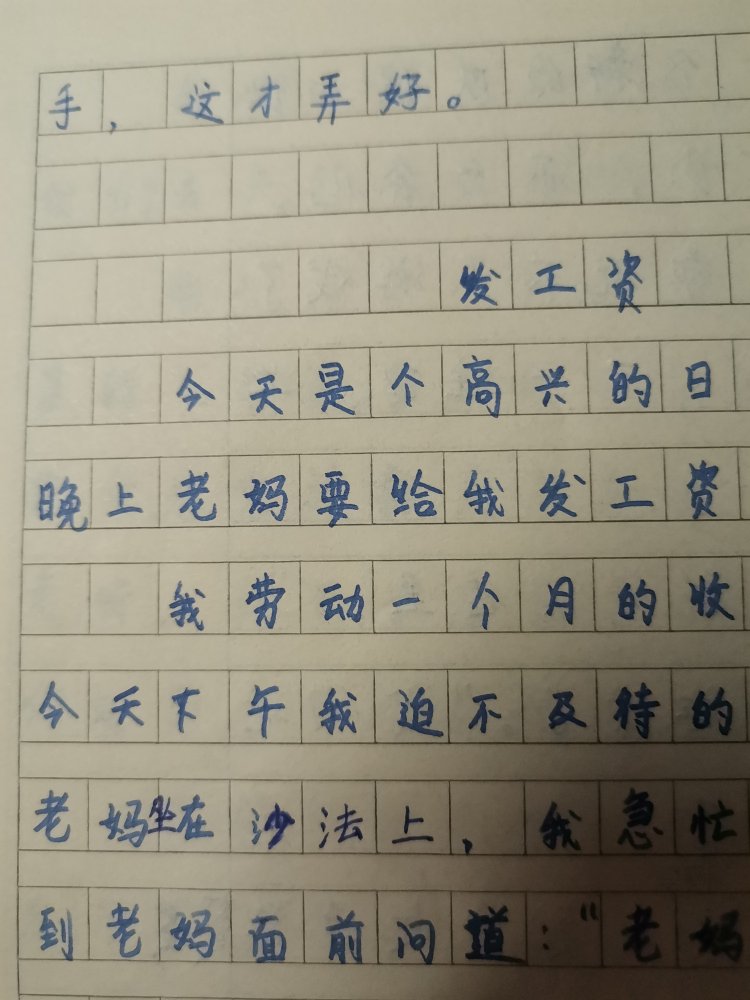 手，这才弄好。
发工资
今天是个高兴的日
晚上老妈要给我发工资
我劳动一个月的收
今天下午我迫不及待的
老妈坐在沙法上，我急忙
到老妈面前问道：“老妈